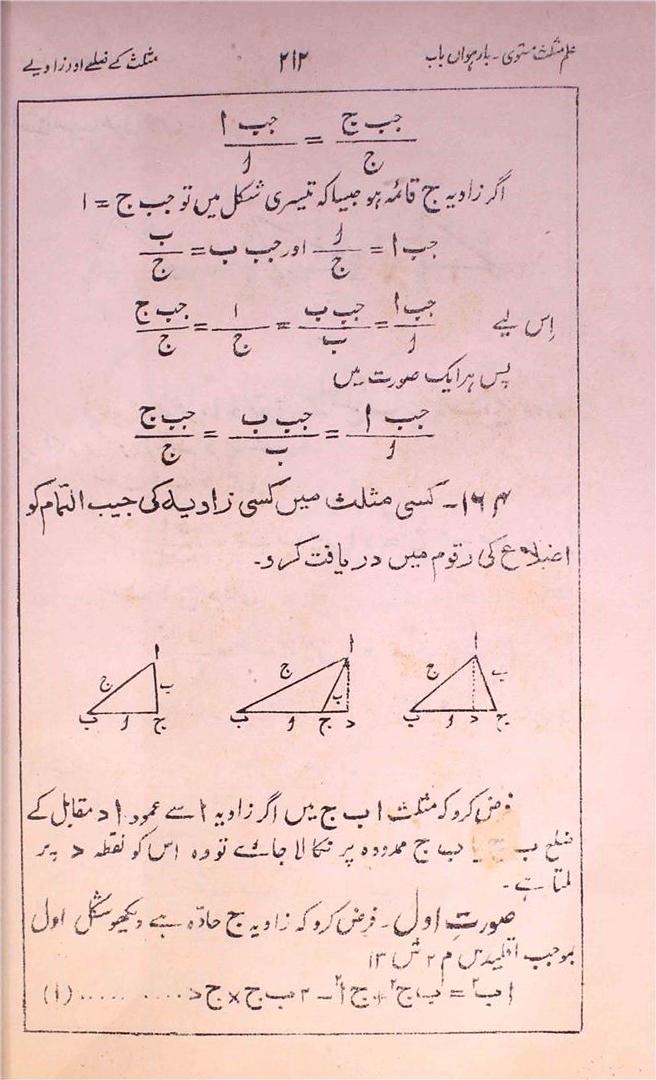 علم مثلث مستوی - بارہواں باب ۲۱۲ مثلث کے ضلعے اور زاویے
جب ج / ج = جب ا / اَ
اگر زاویہ ج قائمہ ہو جیسا کہ تیسری شکل میں تو جب ج = ۱
جب ا = اَ / ج اور جب ب = ب / ج
اِس لیے جب ا / اَ = جب ب / ب = ۱ / ج = جب ج / ج
پس ہر ایک صورت میں
جب ا / اَ = جب ب / ب = جب ج / ج
۱۶۴ - کسی مثلث میں کسی زاویہ کی جیب التمام کو
اضلاع کی رقوم میں دریافت کرو۔
ا ا ا
ج ب ج ب ج ب
ب اَ د ج ب اَ ج د ب اَ ج
فرض کرو کہ مثلث ا ب ج میں اگر زاویہ ا سے عمود ا د مقابل کے
ضلع ب ج یا ب ج ممدودہ پر نکالا جائے تو وہ اس کو نقطہ د پر
ملتا ہے۔
صورتِ اول۔ فرض کرو کہ زاویہ ج حادّہ ہے دیکھو شکل اول
بموجب اقلیدس م ۲ ش ۱۳
ا ب² = ب ج² + ج ا² - ۲ ب ج × ج د .......... (۱)